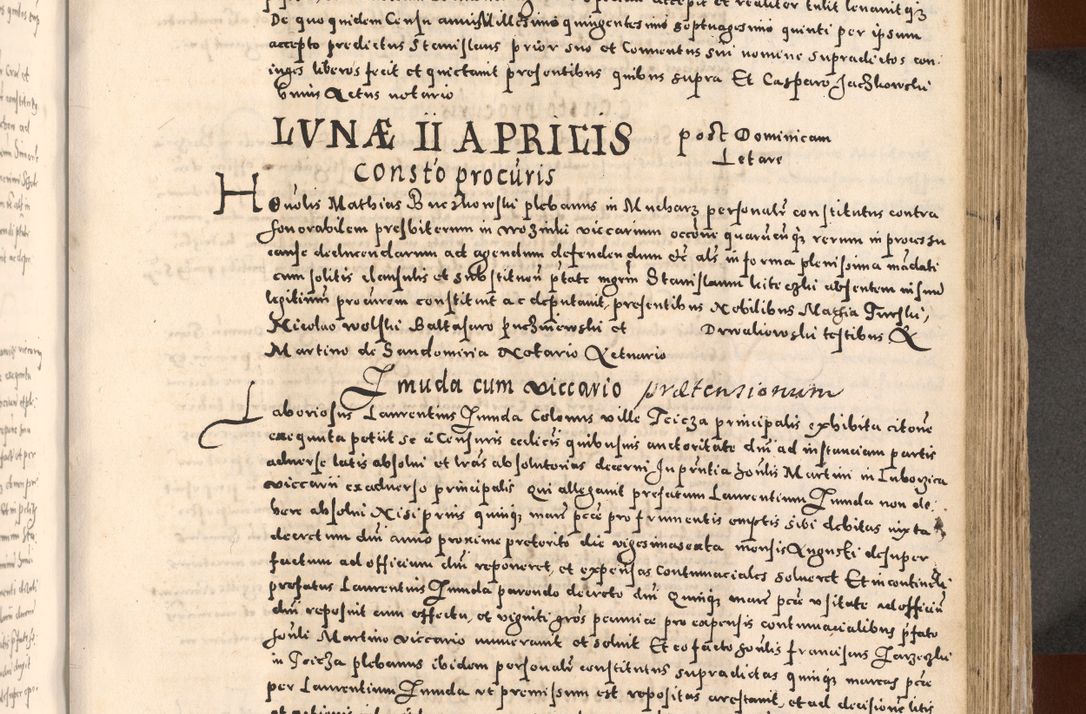 De quoquidem Censu anni Millesimo quingentesimo septuagesimo quinti per ipsum
accepto predictus Stanislaus prior suo et Conventus sui nomine supradictos con:
iuges liberos fecit et quietavit presentibus quibus supra Et Casparo Jaczkowski
huius Actus notario
LVNÆ II APRILIS post Dominicam
Letare
Consto procuris
Honolis Mathias Buczkowski plebanus in Mucharz personalr constitutus contra
honorabilem presbiterum in wozniki viccarium occōne quarucūqz rerum in processu
cause deducendarum ad agendum defendendum etc als in forma plenissima mādati
cum solitis clausulis et substituen ptate mgrm Stanislaum absentem
legitimum procurem constituit ac deputavit, presentibus Nobilibus Mathia Turski,
Nicolao wolski Baltasaro puczniewski et Drwaliowski testibus &
Martino de Sandomiria Notario Actuario
Jmuda cum viccario prætensionum
Laboriosus Laurentius Jmuda Colonus ville Teicza principalis exhibita citone
exequuta petiit se a Censuris ecclicis quibusvis auctoritate dni ad instanciam partis
adverse latis absolvi et lras absolutorias decerni In pntia honlis Martini in Luborzica
viccarii ex adverso principalis qui allegavit prefatum Laurentium Jmuda non de:
bere absolvi Nisi prius quinqz marc pcce pro frumentis emptis sibi debitas iuxta
decretum dni anno proxime preterito die vigesimasexta mensis Augusti desuper
factum ad officium dni reponeret, et expensas contumaciales solveret Et incontinenti
prefatus Laurentius Jmuda parendo decreto dni quinqz marc pcce usitate ad officiū
dni reposuit cum effectu, et viginti gros pecunie pro expensis contumacialibus pfato
honli Martino viccario numeravit et solvit Et eo facto honlis franciscus
in Teicza plebanus ibidem personalr constitutus supradictas quinqz marcas pcce
per Laurentium Jmuda ut premissum est repositas arestavit, et ad decisionē litis